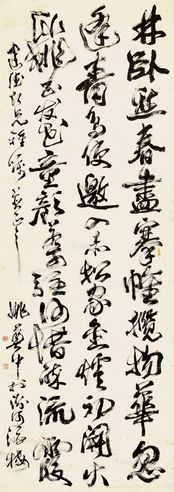 林臥愁春盡搴帷攬物華忽
逢青鳥使邀入赤松家金初開火
仙桃正發花童顏若駐何惜醉流霞
兄雅屬正之
姚奠中